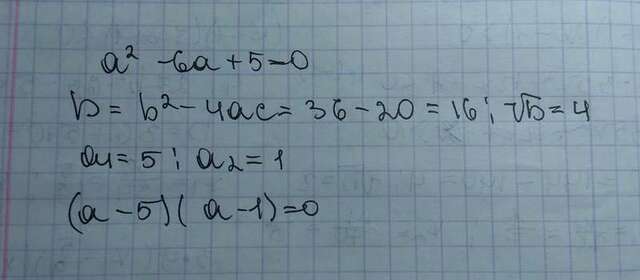 a² - 6a + 5 = 0
D = b² - 4ac = 36 - 20 = 16; √D = 4
a₁ = 5; a₂ = 1
(a - 5)(a - 1) = 0